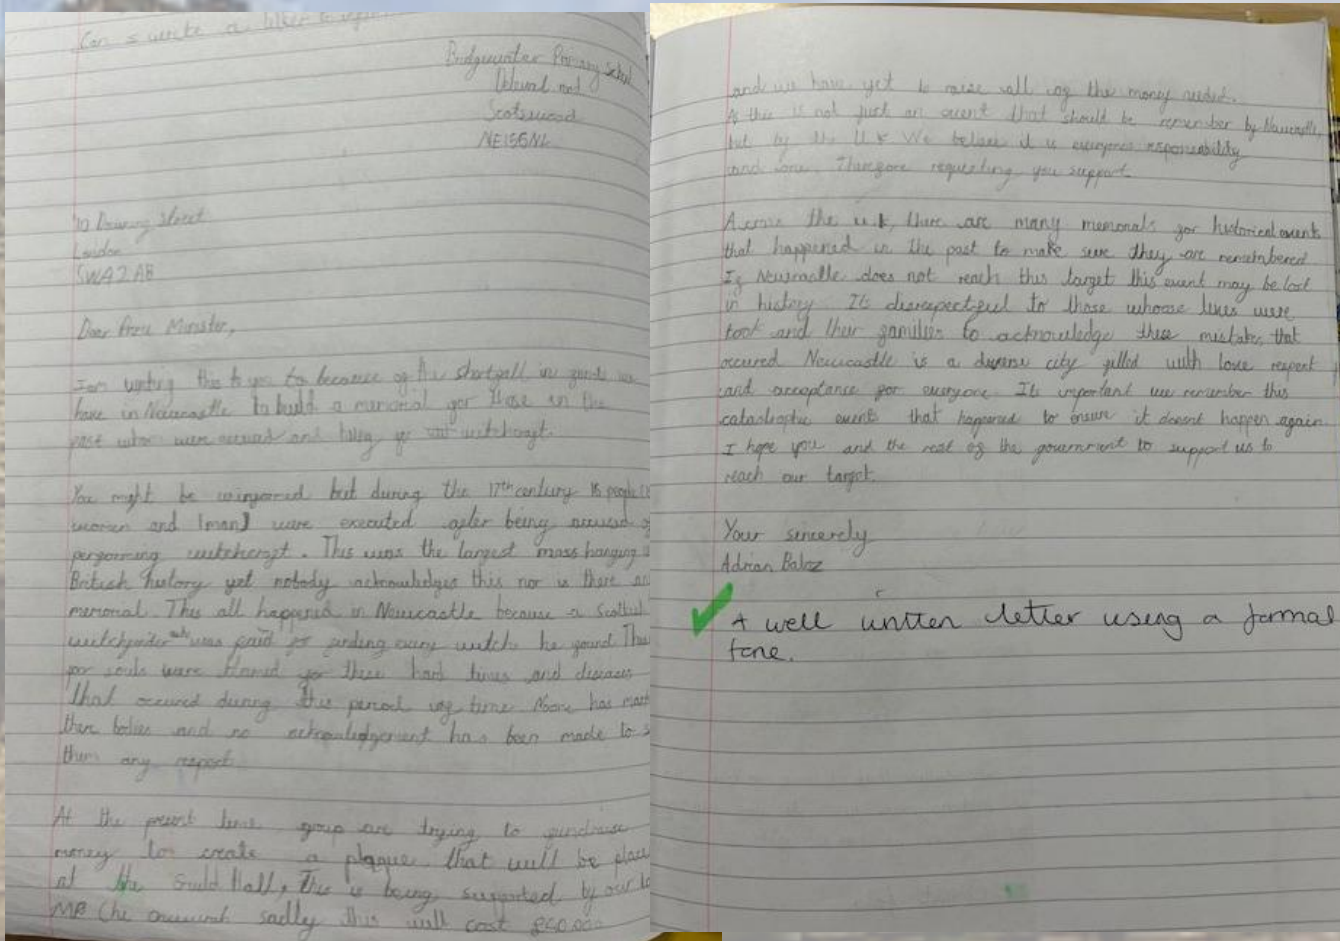 Can I write a letter to
Bridgewater Primary School
Delaval road
Scotswood
NE156NL
10 Downing Street
London
SWA2AB
Dear Prime Minister,
I am writing this to you to because of the shortfall in funds we
have in Newcastle to build a memorial for those in the
past who were accused and of witchcraft.
You might be uninformed but during the 17th century 16 people
women and 1 man) were executed after being accused of
performing witchcraft. This was the largest mass hanging
British history yet nobody acknowledges this nor is there
memorial. This all happened in Newcastle because a Scottish
was paid for finding every witch he found
por souls were blamed for these hard times and diseases
that occured during this period of time has
bodies and no acknowledgement has been made to
them any respect.
At the present time group are trying to fundraise
money to create a plaque that will be place
at the Guild Hall, this is being supported by our
MP Chi sadly this will cost
and we have yet to raise all of the money needed.
As this is not just an event that should be remember by Newcastle,
but by the U.K We believe it is everyones responsibility
Therefore requesting you support.
Across the u.k, there are many memorials for historical events
that happened in the past to make sure they are remembered
If Newcastle does not reach this target this event may be lost
in history. Its disrespectful to those whoose lives were
took and their families to acknowledge these mistakes that
occured Newcastle is a city filled with love respect
and acceptance for everyone. Its important we remember this
catastrophic events that happened to ensure it doesnt happen again
I hope you and the rest of the government to support us to
reach our target.
Your sincerely
Adrian
A well written letter using a formal
tone.